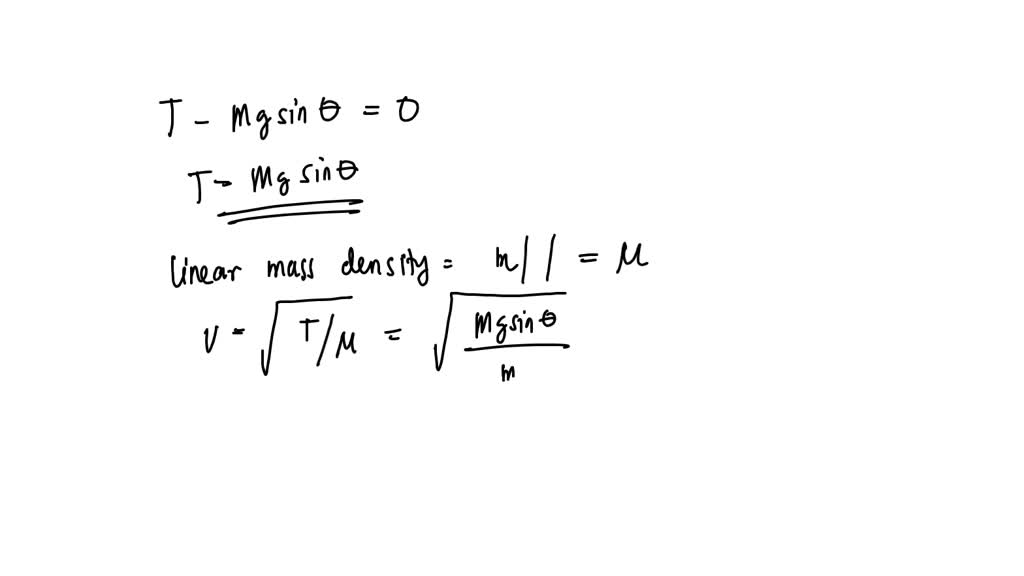 T - Mg sin θ = 0
T = Mg sin θ
linear mass density = m/l = μ
V = √T/μ = √Mg sin θ/m